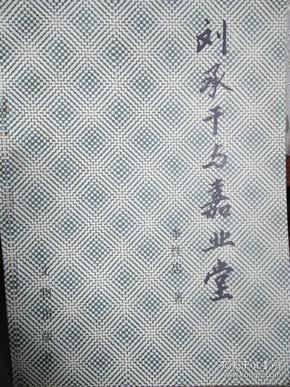 刘承干与嘉业堂
李性忠 著
文物出版社